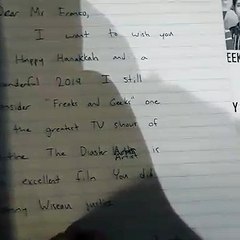 Dear Mr Franco,
I want to wish you
Happy Hanakkah and a
wonderful 2019 I still
consider "Freaks and Geeks" one
the greatest TV shows of
time The Disaster Artist is
excellent film You did
Wiseau
EEK
Y